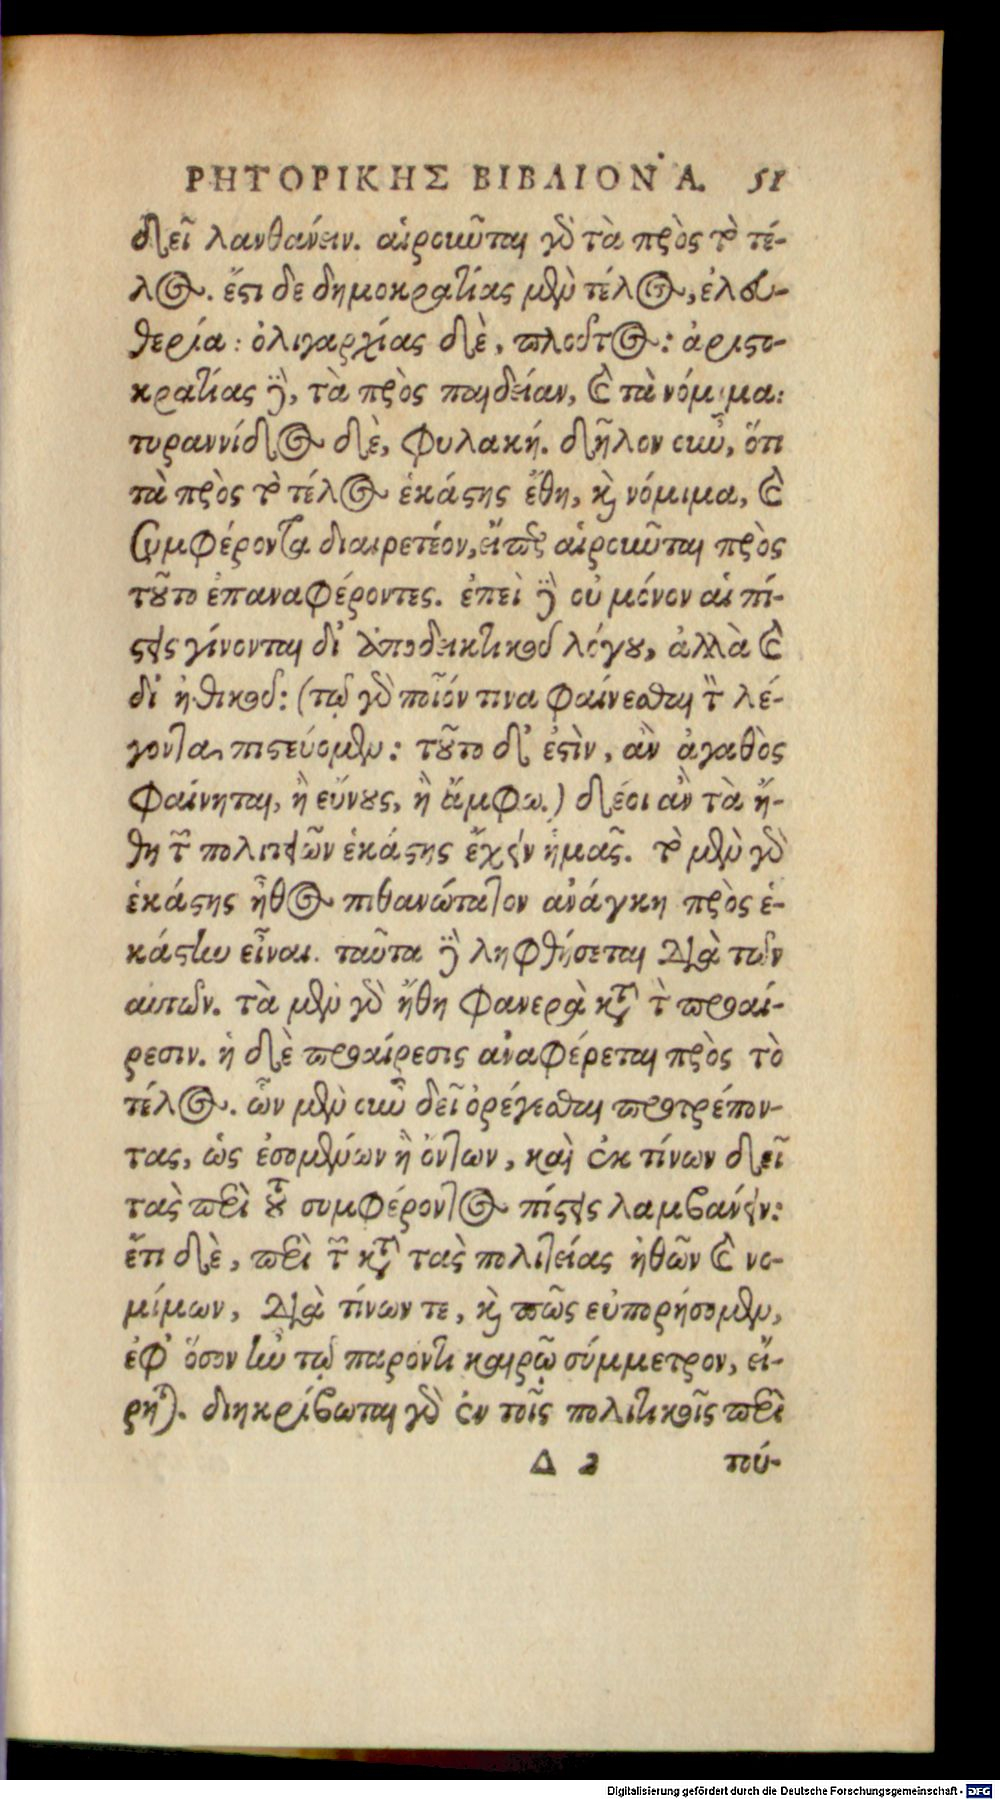 ΡΗΤΟΡΙΚΗΣ ΒΙΒΛΙΟΝ Α. 51
δεῖ λανθάνειν. αἱροῦνται γδ τὰ πρὸς τὸ τέ-
λος. ἔστι δε δημοκρατίας μὲν τέλος, ἐλευ-
θερία: ὀλιγαρχίας δὲ, πλοῦτος: ἀριστο-
κρατίας δὲ, τὰ πρὸς παιδείαν, καὶ τὰ νόμιμα:
τυραννίδος δὲ, φυλακή. δῆλον οὖν, ὅτι
τὰ πρὸς τὸ τέλος ἑκάστης ἔθη, καὶ νόμιμα, καὶ
συμφέροντα διαιρετέον, εἴπερ αἱροῦνται πρὸς
τοῦτο ἐπαναφέροντες. ἐπεὶ δὲ οὐ μόνον αἱ πί-
στεις γίνονται δι' ἀποδεικτικοῦ λόγου, ἀλλὰ καὶ
δι ἠθικοῦ: (τῷ γὰρ ποῖόν τινα φαίνεσθαι τὸν λέ-
γοντα, πιστεύομεν: τοῦτο δ' ἐστὶν, ἂν ἀγαθὸς
φαίνηται, ἢ εὔνους, ἢ ἄμφω.) δέοι ἂν τὰ ἤ-
θη τῶν πολιτειῶν ἑκάστης ἔχειν ἡμᾶς. τὸ μὲν γὰρ
ἑκάστης ἦθος πιθανώτατον ἀνάγκη πρὸς ἑ-
κάστην εἶναι. ταῦτα δὲ ληφθήσεται διὰ τῶν
αὐτῶν. τὰ μὲν γὰρ ἤθη φανερὰ κατὰ τὴν προαί-
ρεσιν. ἡ δὲ προαίρεσις ἀναφέρεται πρὸς τὸ
τέλος. ὧν μὲν οὖν δεῖ ὀρέγεσθαι προτρέπον-
τας, ὡς ἐσομένων ἢ ὄντων, καὶ ἐκ τίνων δεῖ
τὰς περὶ τοῦ συμφέροντος πίστεις λαμβάνειν:
ἔτι δὲ, περὶ τῶν κατὰ τὰς πολιτείας ἠθῶν καὶ νο-
μίμων, διὰ τίνων τε, καὶ πῶς εὐπορήσομεν,
ἐφ' ὅσον ἦν τῷ παρόντι καιρῷ σύμμετρον, εἴ-
ρηται. διηκρίβωται γὰρ ἐν τοῖς πολιτικοῖς περὶ
Δ 2 τού-
Digitalisierung gefördert durch die Deutsche Forschungsgemeinschaft - DFG